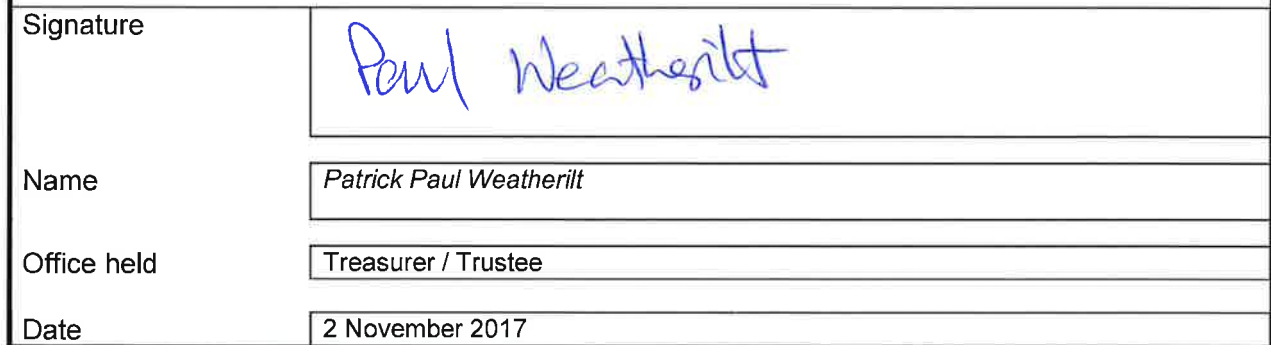 Signature
Paul Weatherilt
Name
Patrick Paul Weatherilt
Office held
Treasurer / Trustee
Date
2 November 2017